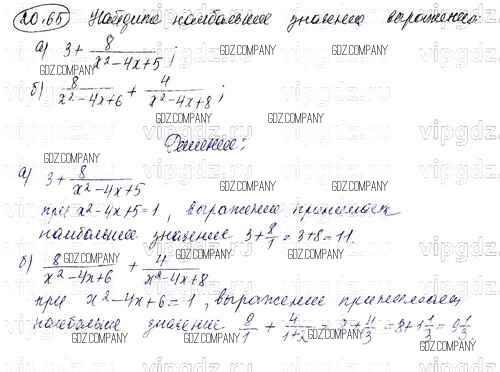 20.65 Найдите наибольшее значение выражения:
а) 3 + 8/(x² - 4x + 5);
б) 8/(x² - 4x + 6) + 4/(x² - 4x + 8);
Решение:
а) 3 + 8/(x² - 4x + 5)
при x² - 4x + 5 = 1, выражение принимает
наибольшее значение 3 + 8/1 = 3 + 8 = 11.
б) 8/(x² - 4x + 6) + 4/(x² - 4x + 8)
при x² - 4x + 6 = 1, выражение принимает
наибольшее значение 8/1 + 4/(1+2) = 8 + 4/3 = 8 + 1 1/3 = 9 1/3.
GDZ.COMPANY
vipgdz.ru